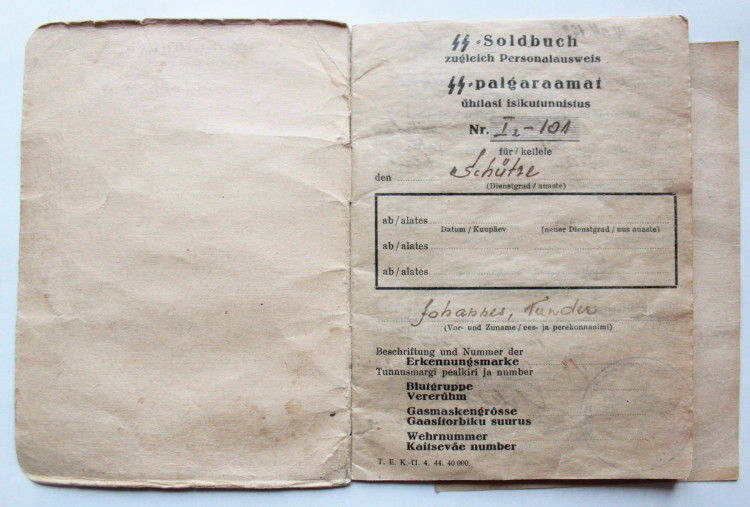 SS-Soldbuch
zugleich Personalausweis
SS-palgaraamat
ühtlasi isikutunnistus
Nr. I2-101
für / kellele
den Schütze
(Dienstgrad / auaste)
ab / alates
Datum / Kuupäev (neuer Dienstgrad / uus auaste)
ab / alates
ab / alates
Johannes, Tunder
(Vor- und Zuname / ees- ja perekonnanimi)
Beschriftung und Nummer der
Erkennungsmarke
Tunnusmargi pealkiri ja number
Blutgruppe
Vererühm
Gasmaskengrösse
Gaasitorbiku suurus
Wehrnummer
Kaitseväe number
T. E. K.-Ü. 4. 44. 40 000.